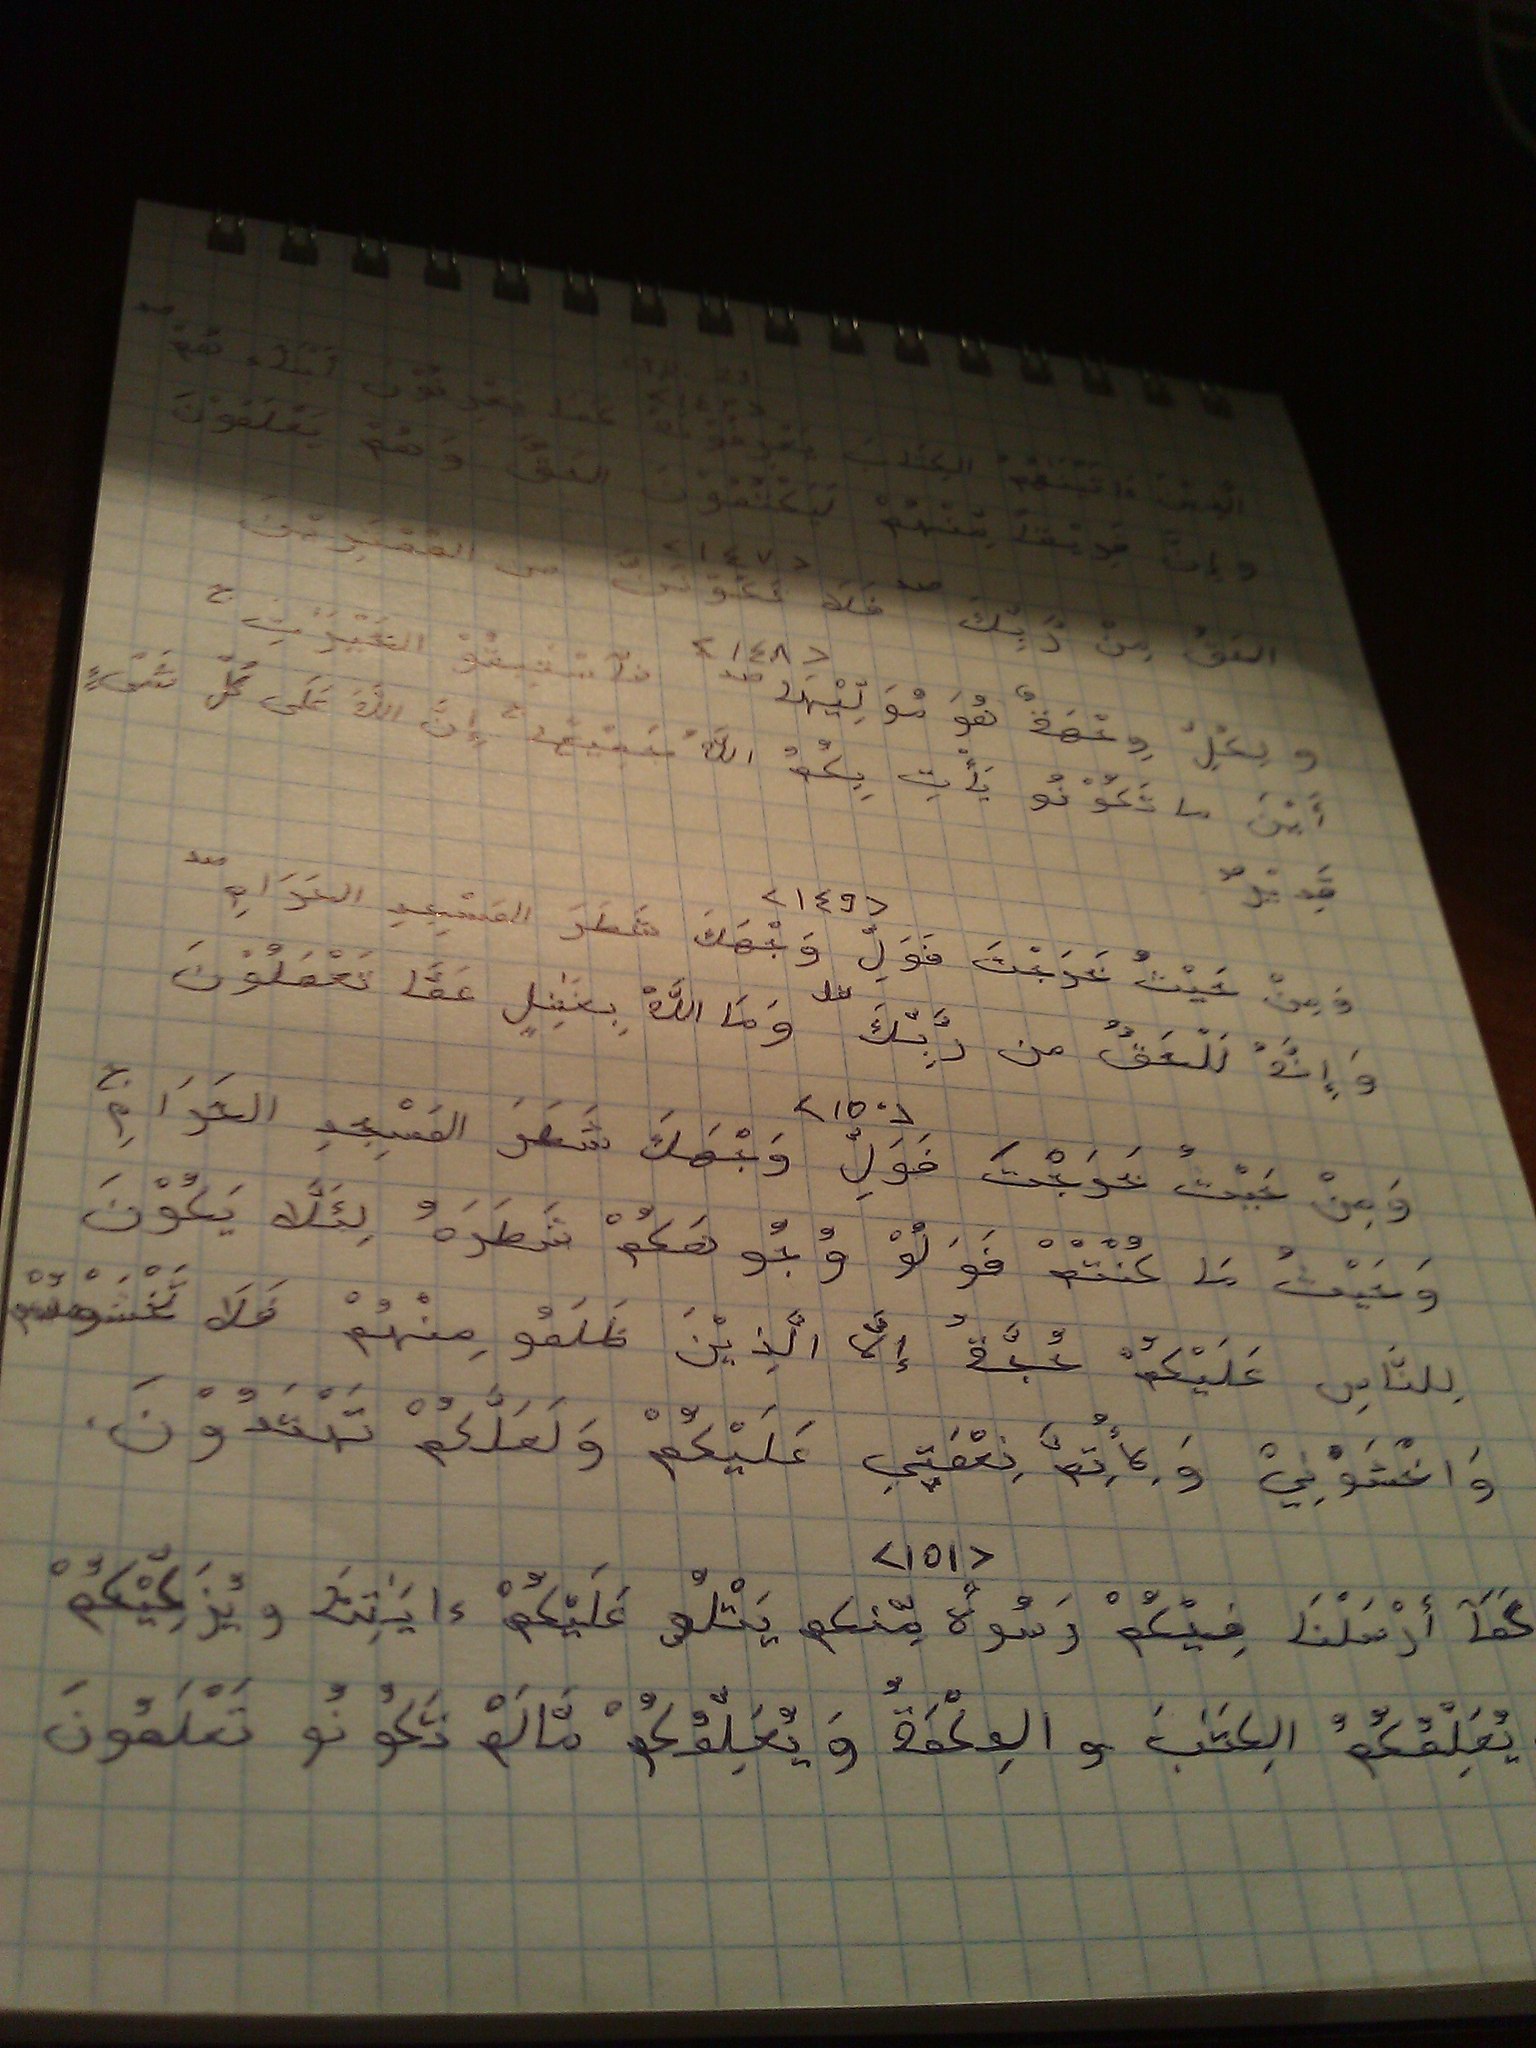 <١٤٦>
الَّذِيْنَ ءَاتَيْنَهُمُ الكِتَابَ يَعْرِفُوْنَهُ كَمَا يَعْرِفُوْنَ أَبْنَاءَهُمْ صلى
و إِنَّ فَرِيْقًا مِّنْهُمْ لَيَكْتُمُوْنَ الحَقَّ وَهُمْ يَعْلَمُوْنَ
<١٤٧>
الحَقُّ مِنْ رَّبِّكَ صلى فَلَا تَكُوْنَنَّ من المُمْتَرِيْنَ
<١٤٨>
و لِكُلٍّ وِجْهَةٌ هُوَ مُوَلِّيْهَا صلى فَاسْتَبِقُوْ الخَيْرَٰتِ ج
أَيْنَ ما تَكُوْنُو يَأْتِ بِكُمُ اللَّهُ جَمِيْعًا ج إِنَّ اللَّهَ عَلَى كُلِّ شَىْءٍ
قَدِيْرٌ
<١٤٩>
وَ مِنْ حَيْثُ خَرَجْتَ فَوَلِّ وَجْهَكَ شَطرَ المَسْجِدِ الحَرَامِ صلى
وَ إِنَّهُ لَلْحَقُّ من رَّبِّكَ صلى وَمَا اللَّهُ بِغَٰفِلٍ عَمَّا تَعْمَلُوْنَ
<١٥٠>
وَ مِنْ حَيْثُ خَرَجْتَ فَوَلِّ وَجْهَكَ شَطرَ المَسْجِدِ الحَرَامِ ج
وَ حَيْثُ مَا كُنْتُمْ فَوَلُّوْ وُجُوهَكُمْ شَطرَهُ لِئَلَّا يَكُوْنَ
لِلنَّاسِ عَلَيْكُمْ حُجَّةٌ إِلَّا الَّذِيْنَ ظَلَمُو مِنْهُمْ فَلَا تَخْشَوْهُمْ
وَ اخْشَوْنِيْ وَ لِأُتِمَّ نِعْمَتِي عَلَيْكُمْ وَ لَعَلَّكُمْ تَهْتَدُوْنَ.
<١٥١>
كَمَآ أَرْسَلْنَا فِيْكُمْ رَسُولًا مِّنكم يَتْلُو عَلَيْكُمْ ءايَٰتِنَا و يُزَكِّيْكُمْ
يُعَلِّمُكُمُ الكِتَٰبَ و الحِكْمَةَ وَ يُعَلِّمُكُمْ مَّا لَمْ تَكُونُو تَعْلَمُونَ